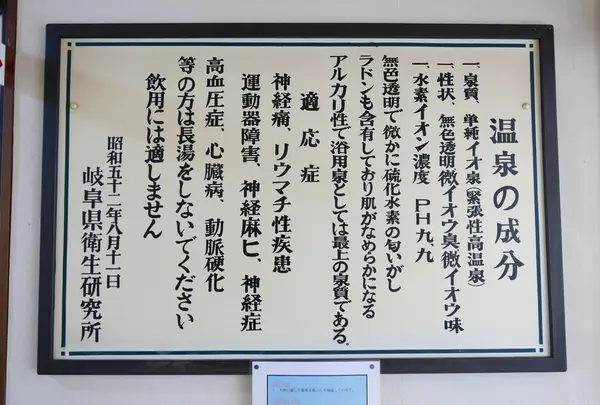 温泉の成分
一、泉質、単純イオ泉(緊張性高温泉)
一、性状、無色透明微イオウ臭、微イオウ味
一、水素イオン濃度 PH九、九
無色透明で微かに硫化水素の匂いがし
ラドンも含有しており肌がなめらかになる
アルカリ性で浴用泉としては最上の泉質である。
適応症
神経痛、リウマチ性疾患
運動器障害、神経麻ヒ、神経症
高血圧症、心臓病、動脈硬化
等の方は長湯をしないでください
飲用には適しません
昭和五十二年八月十一日
岐阜県衛生研究所